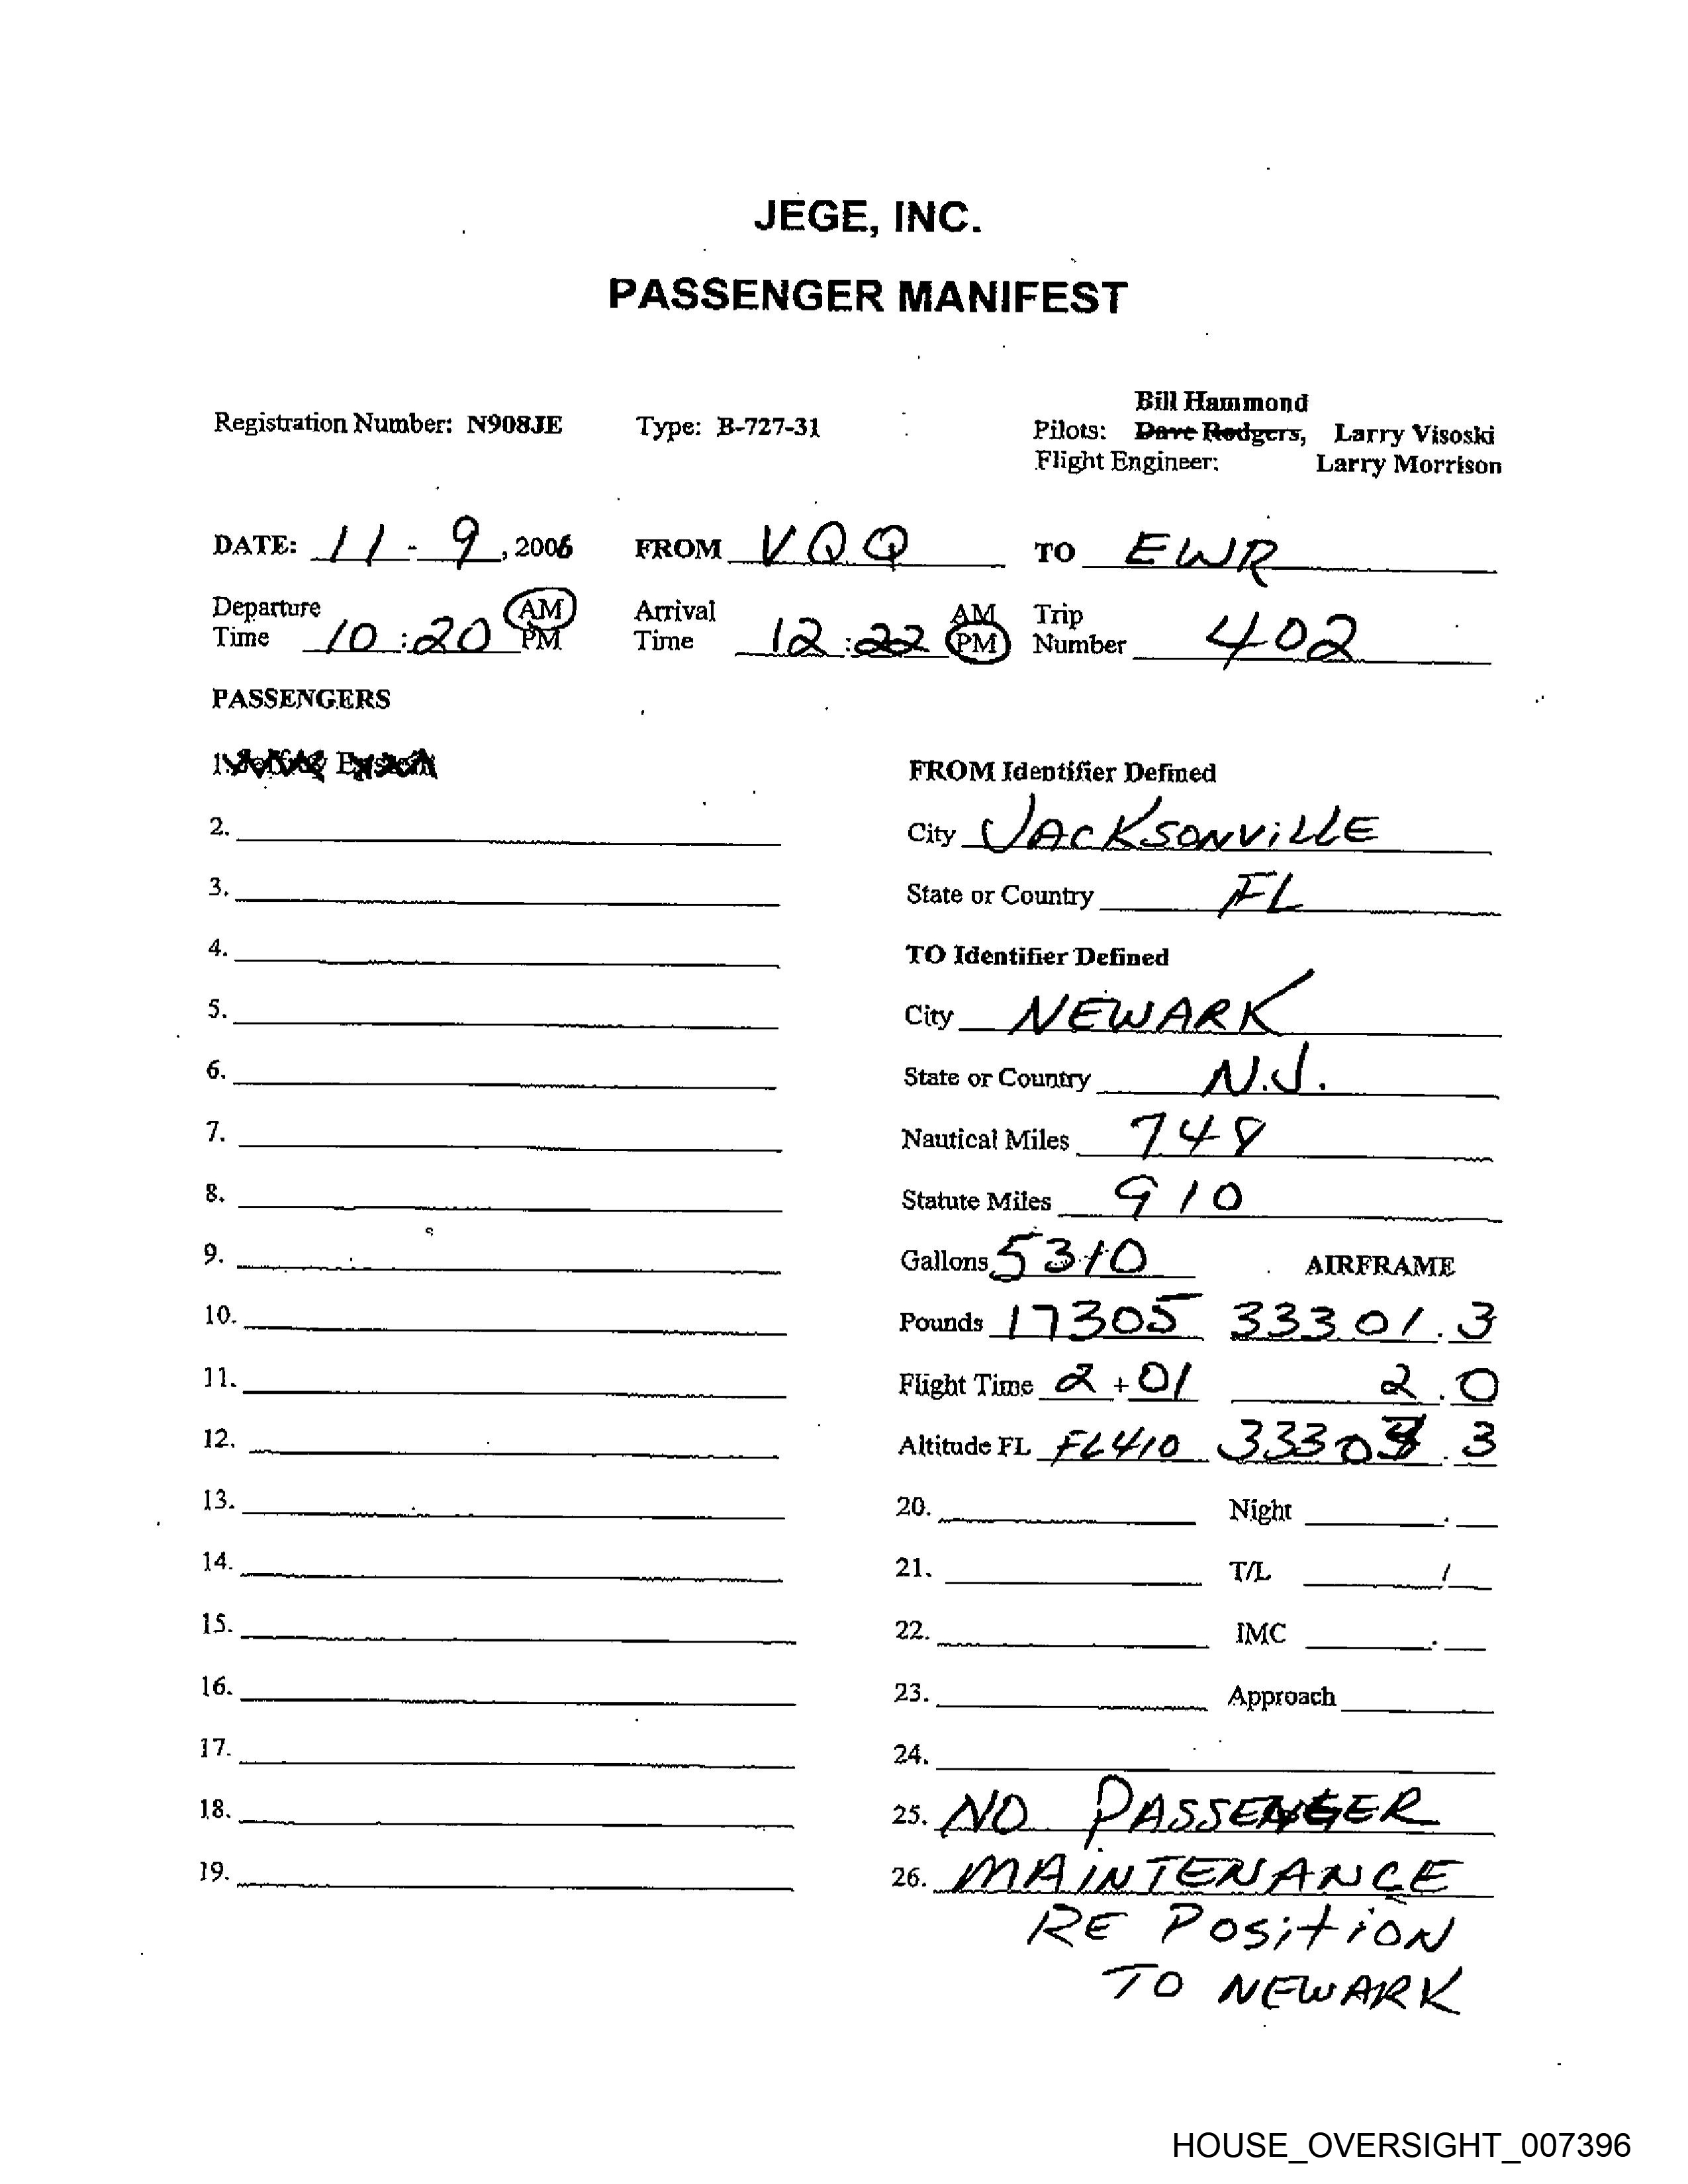 JEGE, INC.
PASSENGER MANIFEST
Bill Hammond
Registration Number: N908JE Type: B-727-31 Pilots: Dave Rodgers, Larry Visoski
Flight Engineer: Larry Morrison
DATE: 11 - 9, 2006 FROM VQQ TO EWR
Departure Time 10:20 AM PM Arrival Time 12:22 AM PM Trip Number 402
PASSENGERS
1. Jeffrey Epstein
FROM Identifier Defined
2.
City JACKSONVILLE
3.
State or Country FL
4.
TO Identifier Defined
5.
City NEWARK
6.
State or Country N.J.
7.
Nautical Miles 748
8.
Statute Miles 910
9.
Gallons 5310 AIRFRAME
10.
Pounds 17305 33301.3
11.
Flight Time 2+01 2.0
12.
Altitude FL FL410 33303.3
13.
20. Night .
14.
21. T/L /
15.
22. IMC .
16.
23. Approach
17.
24.
18.
25. NO PASSENGER
19.
26. MAINTENANCE
RE POSITION
TO NEWARK
HOUSE_OVERSIGHT_007396